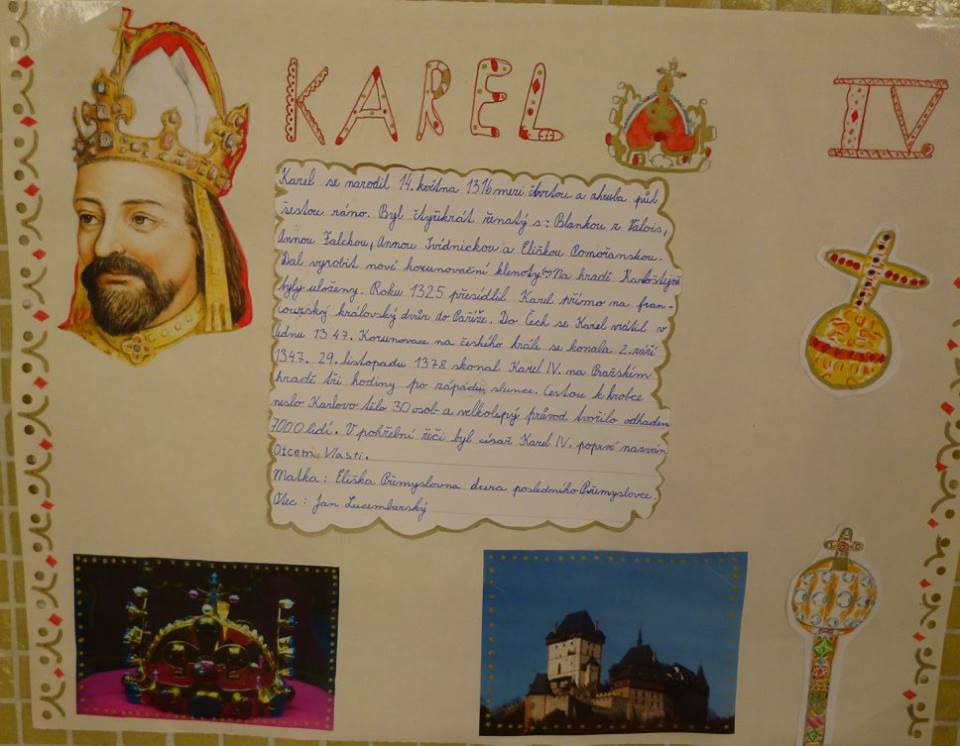 KAREL IV
Karel se narodil 14. května 1316 mezi čtvrtou a zhruba půl
šestou ráno. Byl čtyřikrát ženatý s: Blankou z Valois,
Annou Falckou, Annou Svídnickou a Eliškou Pomořanskou.
Dal vyrobit nové korunovační klenoty. Na hradě Karlštejně
byly uloženy. Roku 1325 přesídlil Karel přímo na fran-
couzský královský dvůr do Paříže. Do Čech se Karel vrátil v
lednu 1347. Korunovace na českého krále se konala 2. září
1347. 29. listopadu 1378 skonal Karel IV. na Pražském
hradě tři hodiny po západu slunce. Cestou k hrobce
neslo Karlovo tělo 30 osob a velkolepý průvod tvořilo odhadem
7000 lidí. V pohřební řeči byl císař Karel IV. poprvé nazván
Otcem Vlasti.
Matka: Eliška Přemyslovna dcera posledního Přemyslovce.
Otec: Jan Lucemburský